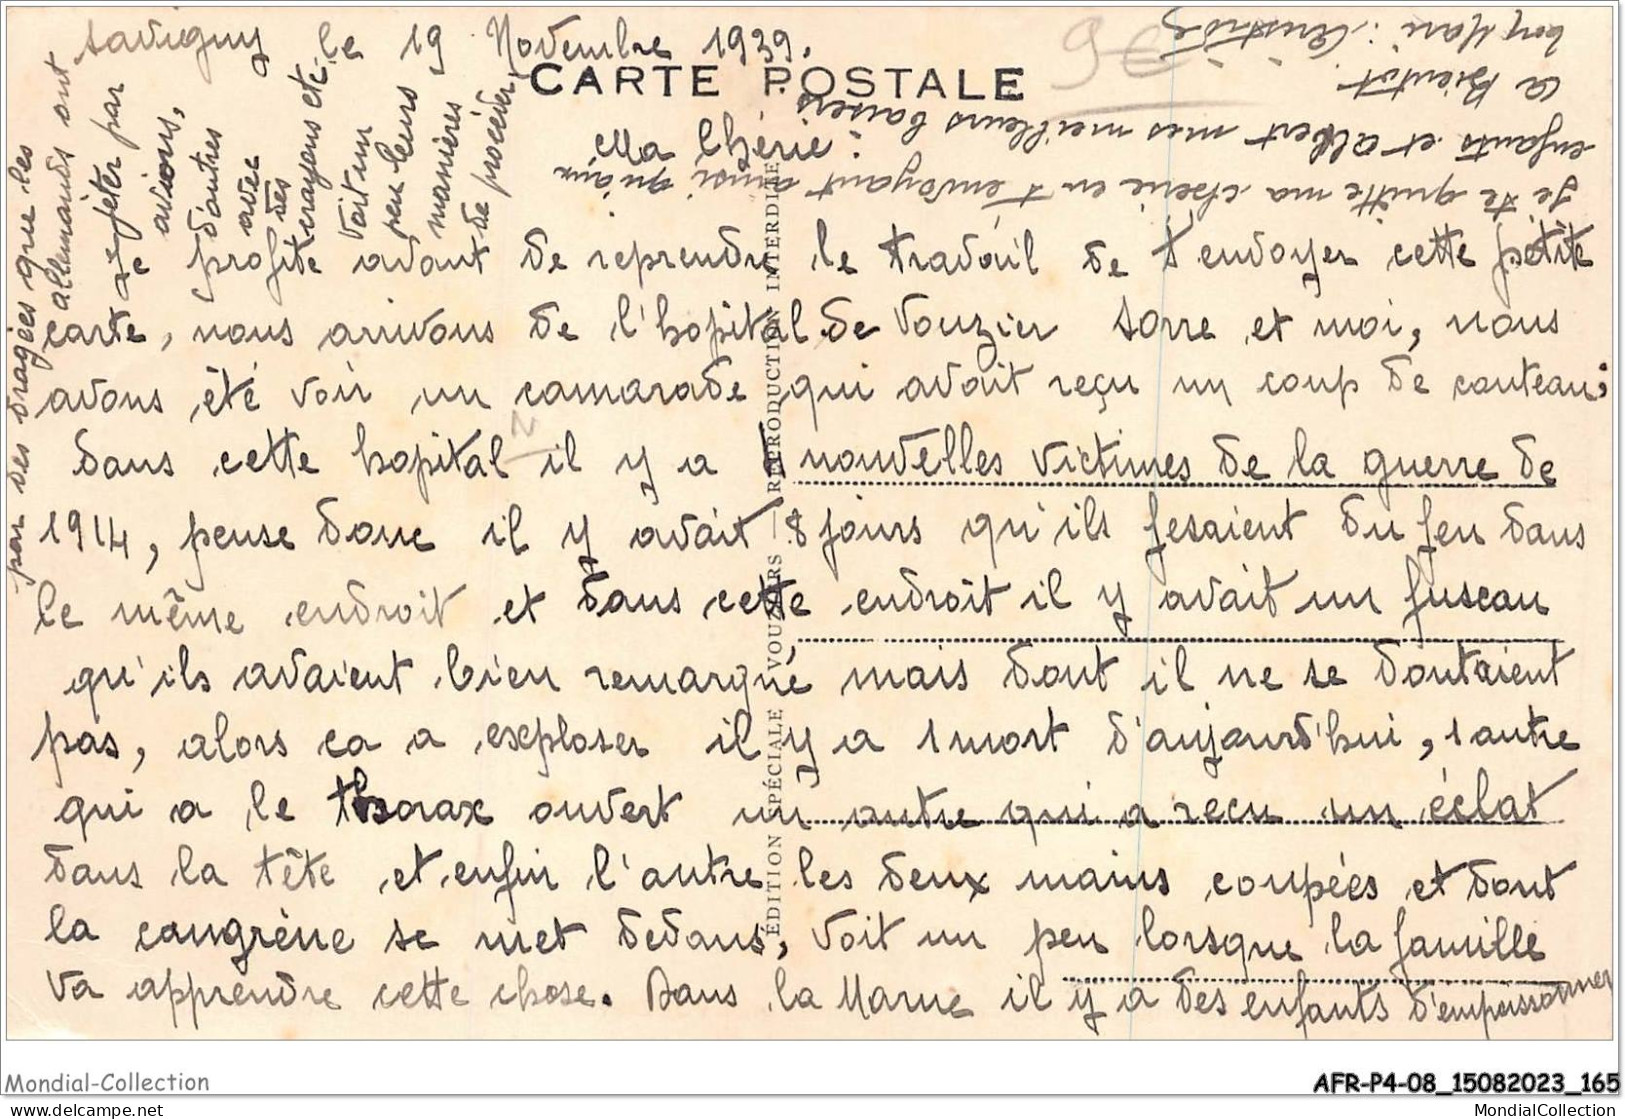 Savigny le 19 Novembre 1939.
CARTE POSTALE
Ma Chérie :
Je profite avant de reprendre le travail de t'envoyer cette petite
carte, nous arrivons de l'hopital de Vouzier Sorre et moi, nous
avons été voir un camarade qui avait reçu un coup de couteau;
Dans cette hopital il y a 4 nouvelles victimes de la guerre de
1914, pense donc il y avait 8 jours qu'ils fesaient du feu dans
le même endroit et dans cette endroit il y avait un fuseau
qu'ils avaient bien remarqué mais dont il ne se doutaient
pas, alors ca a exploser il y a 1 mort d'aujourd'hui, 1 autre
qui a le thorax ouvert un autre qui a recu un éclat
dans la tête et enfin l'autre les deux mains coupées et dont
la cangrène se met dedans, voit un peu lorsque la famille
va apprendre cette chose. Dans la Marne il y a des enfants d'empoissonner
par des dragées que les
allemands ont
jeter par
avions,
d'autres
avec
des
crayons etc.
Voit un
peu leurs
manières
de procéder
Je te quitte ma cherie en t'envoyant ainsi qu'aux
enfants et Albert mes meilleurs baisers
a Bientot
ton Mari : Aristide
9€
ÉDITION SPÉCIALE VOUZIERS — REPRODUCTION INTERDITE
Mondial-Collection
AFR-P4-08_15082023_165
www.delcampe.net
MondialCollection